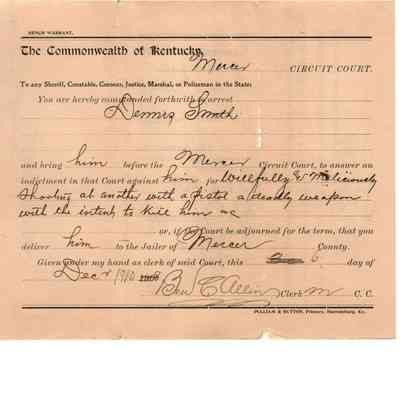 BENCH WARRANT.
The Commonwealth of Kentucky,
Mercer CIRCUIT COURT.
To any Sheriff, Constable, Coroner, Justice, Marshal, or Policeman in the State:
You are hereby commanded forthwith to arrest
Dennis Smith
and bring him before the Mercer Circuit Court, to answer an
indictment in that Court against him for Willfully & Maliciously
Shooting at another with a pistol a deadly weapon
with the intent to kill him &c
or, if the Court be adjourned for the term, that you
deliver him to the Jailer of Mercer County.
Given under my hand as clerk of said Court, this 6 day of
Decr 1910
Ben C Allin Clerk M C. C.
PULLIAM & HUTTON, Printers, Harrodsburg, Ky.